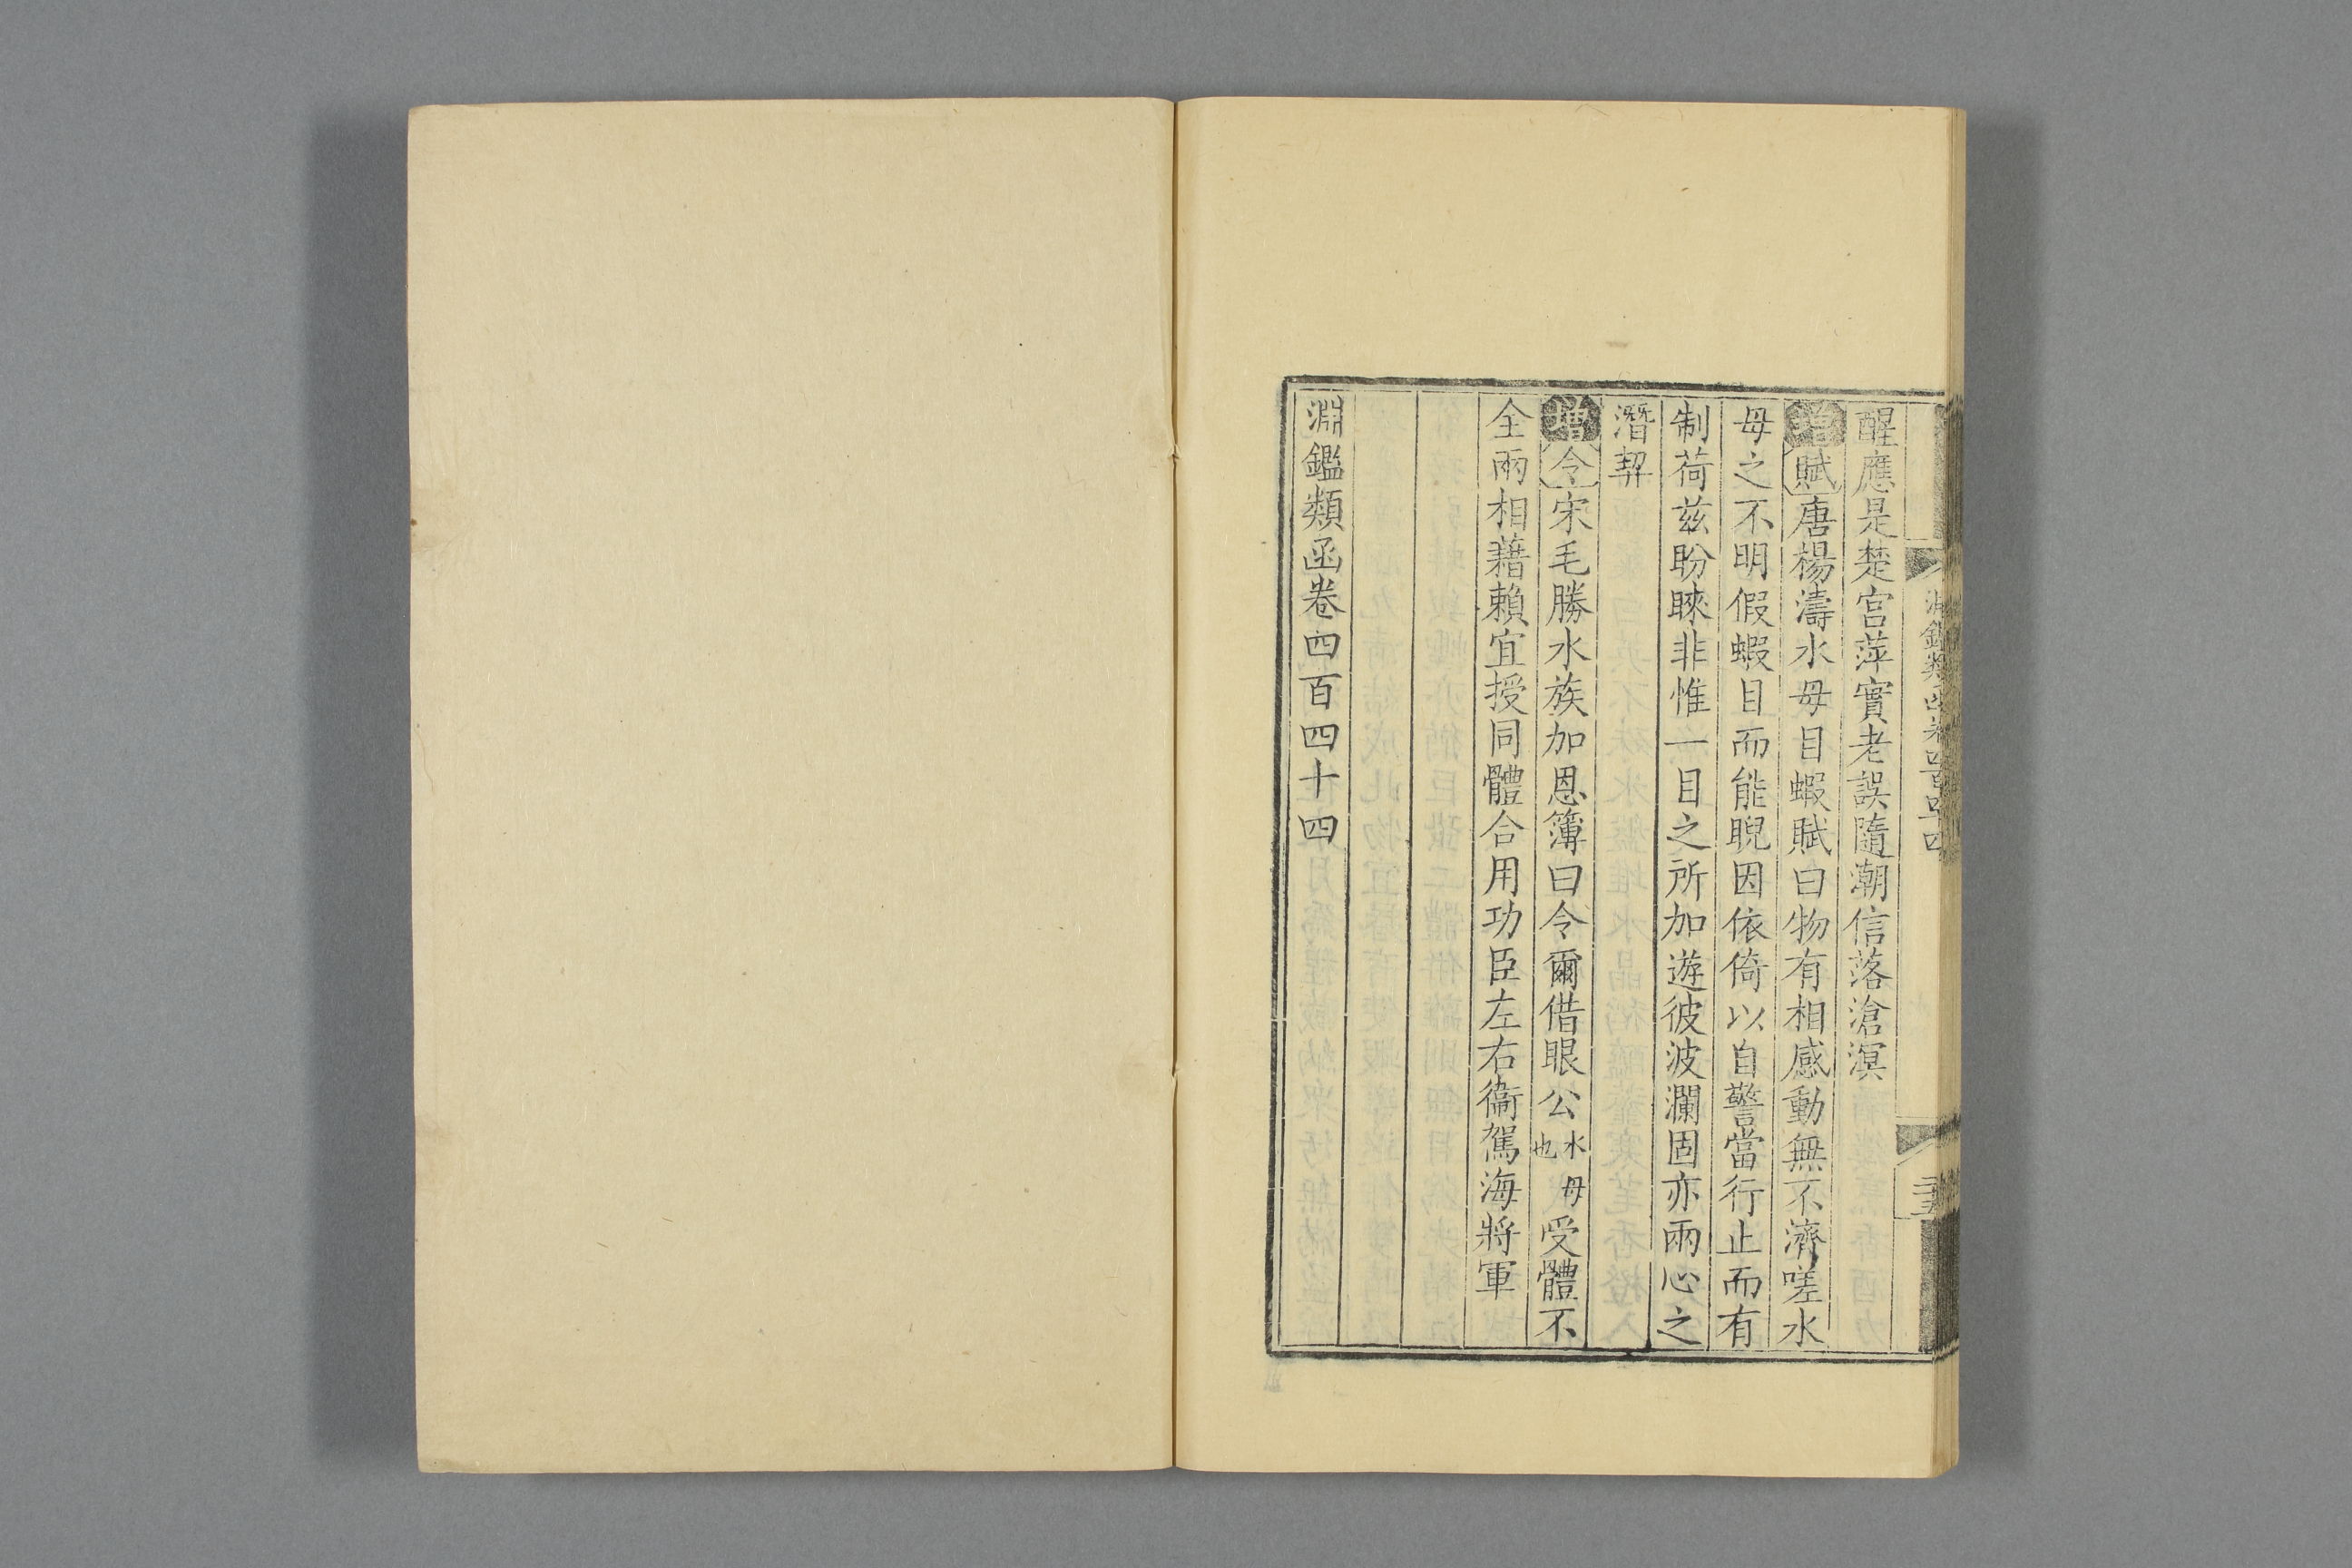 淵鑑類函卷四百四十四
二十五
醒應是楚宮萍實老誤隨潮信落滄溟
增賦唐楊濤水母目蝦賦曰物有相感動無不濟嗟水
母之不明假蝦目而能睨因依倚以自警當行止而有
制荷茲盼睞非惟一目之所加遊彼波瀾固亦兩心之
潛契
增令宋毛勝水族加恩簿曰令爾借眼公水母也受體不
全兩相藉賴宜授同體合用功臣左右衞駕海將軍
淵鑑類函卷四百四十四